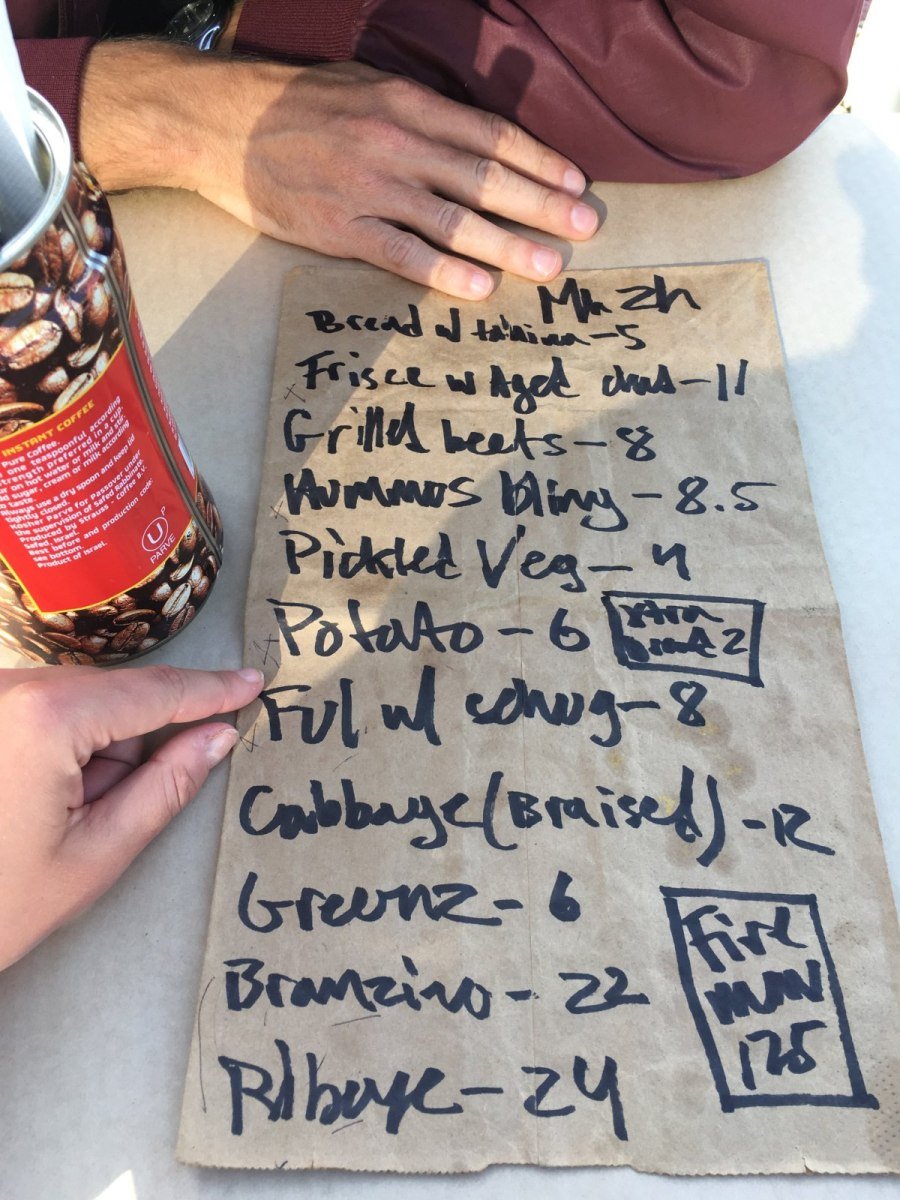 INSTANT COFFEE
Pure Coffee.
one teaspoonful according
strength preferred in a cup.
ur on hot water or milk and stir.
dd sugar, cream or milk according
to taste.
Always use a dry spoon and keep lid
tightly closed.
Kosher Parve for Passover under
the supervision of Safed Rabbinate
Safed, Israel.
Produced by Strauss - Coffee B.V.
Best before and production code:
see bottom.
Product of Israel.
U P
PARVE
Bread w/ tahina - 5
Frisee w Aged - 11
Grilled beets - 8
Hummos Bliny - 8.5
Pickled Veg - 4
Potato - 6
xtra
2
Ful w/ schug - 8
Cabbage (Braised) - 12
Greenz - 6
Branzino - 22
Ribeye - 24
Fire
MAN
125